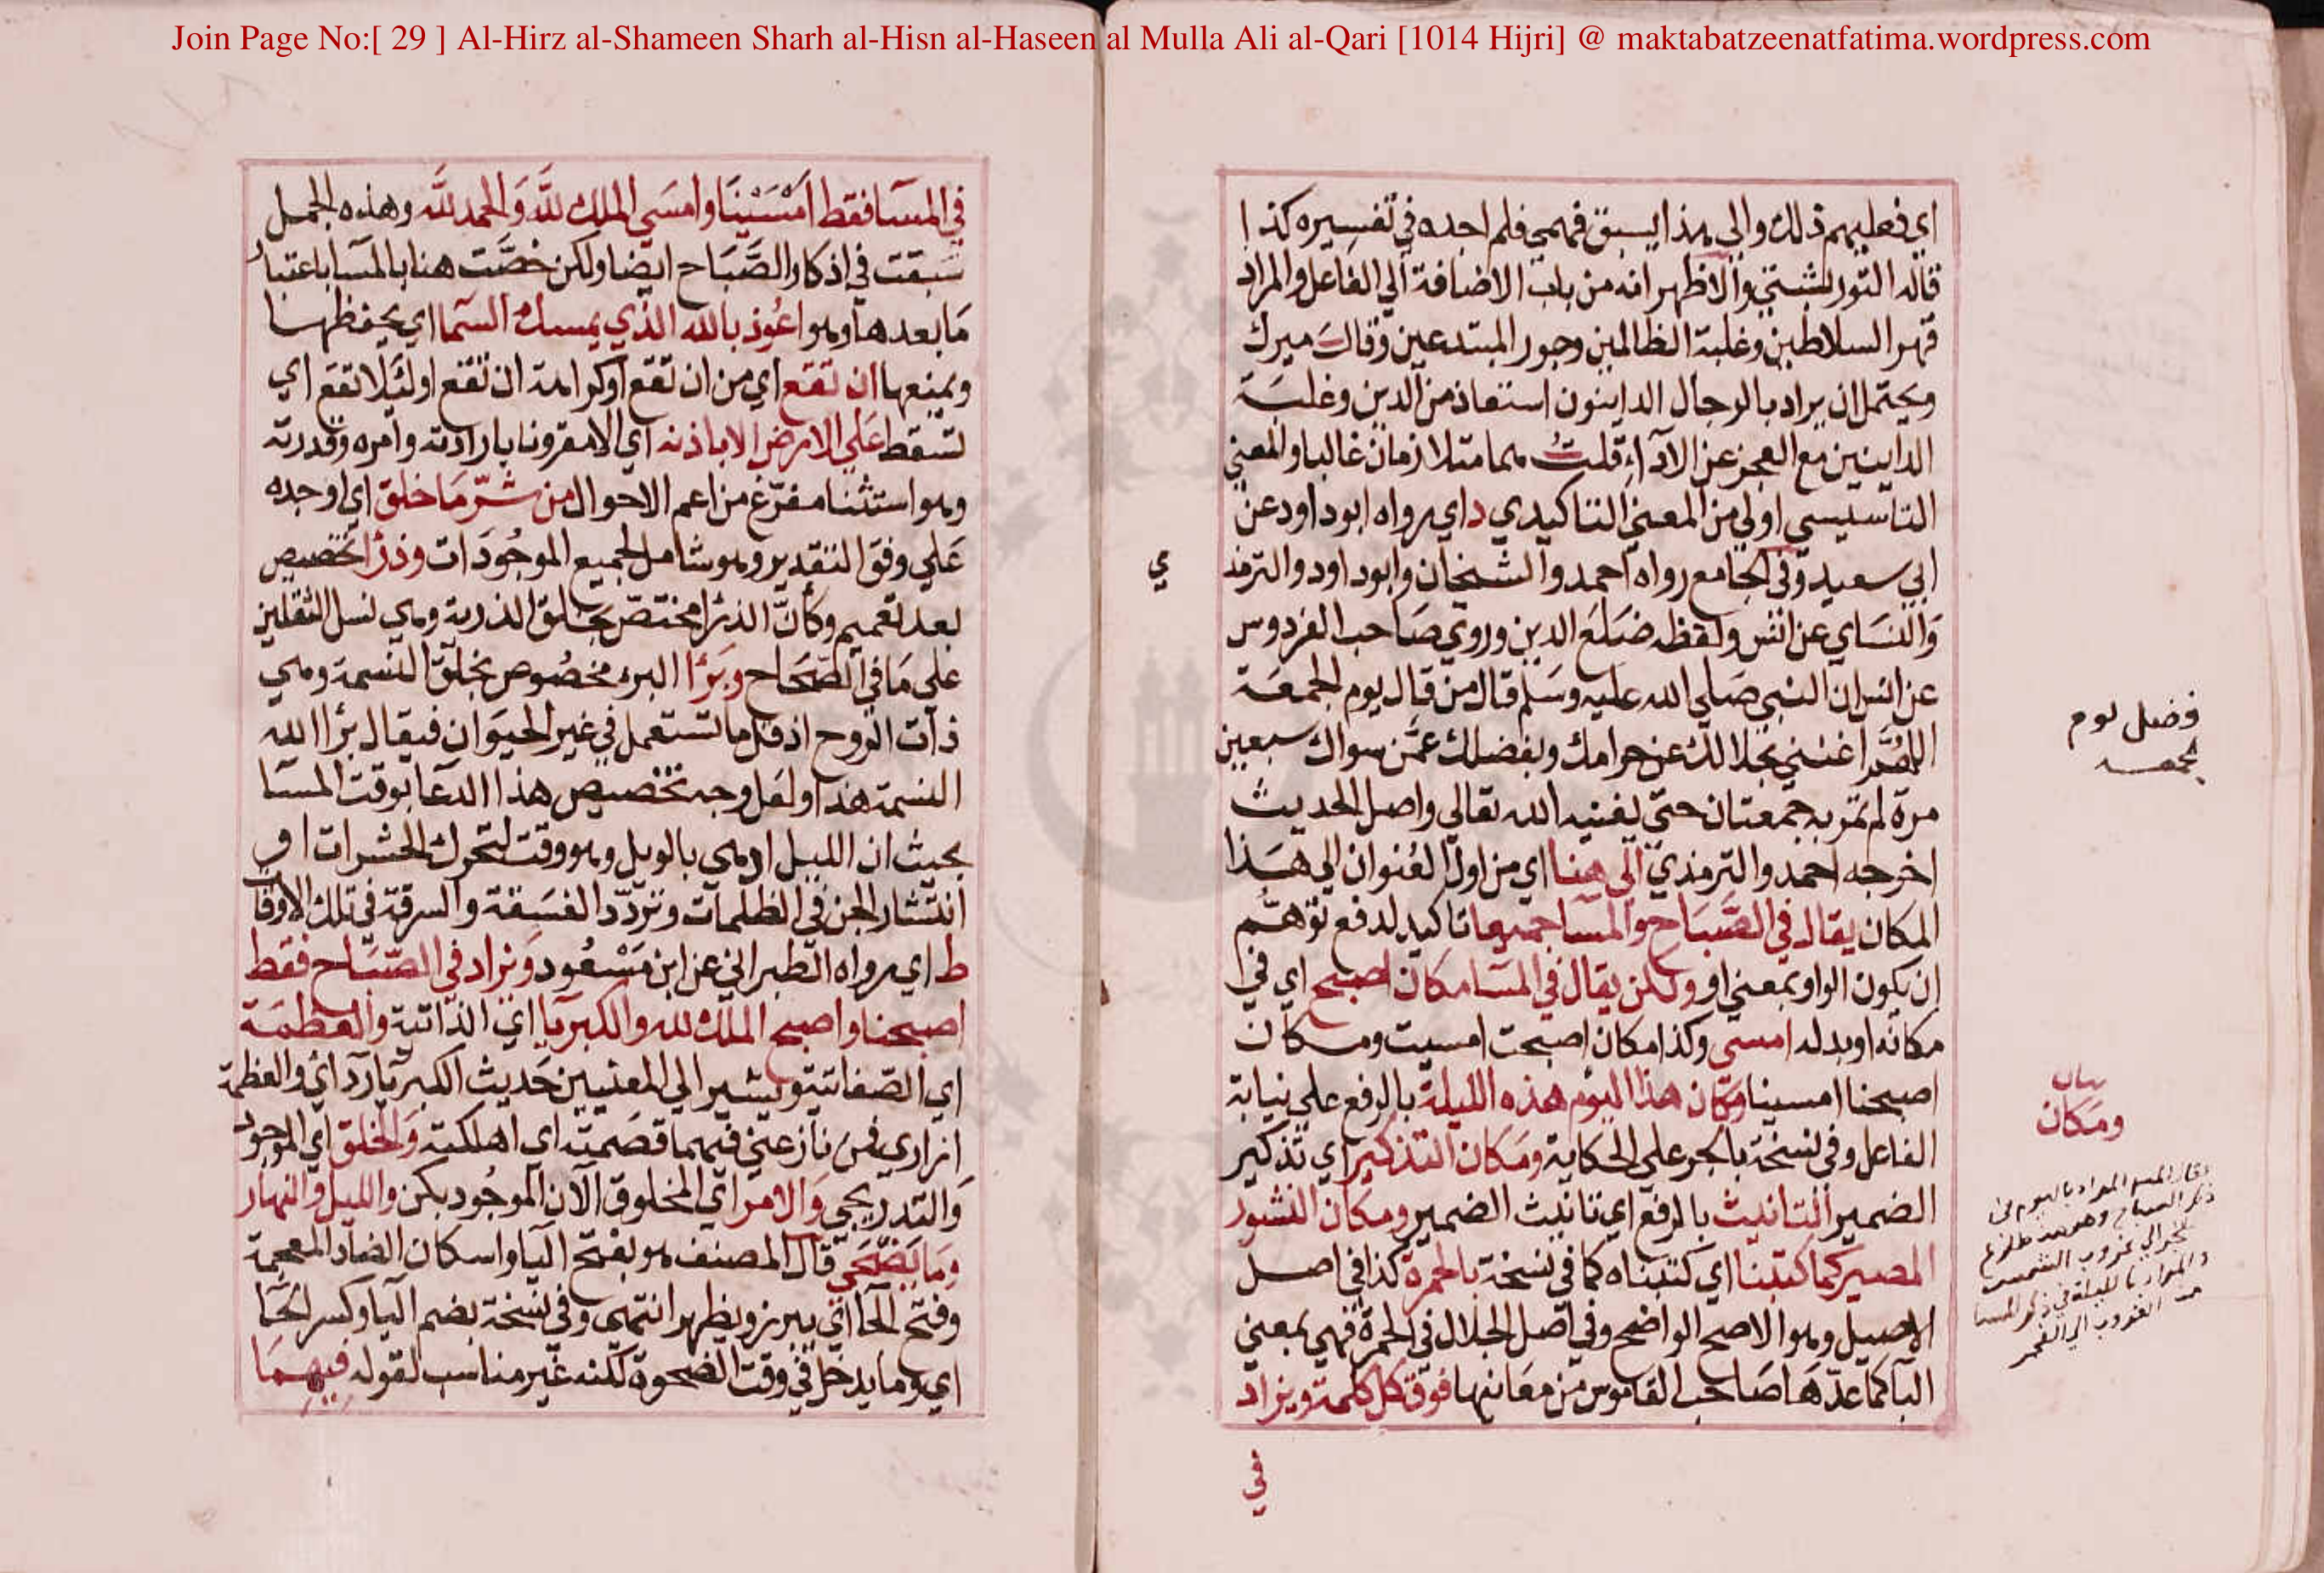 Join Page No:[ 29 ] Al-Hirz al-Shameen Sharh al-Hisn al-Haseen al Mulla Ali al-Qari [1014 Hijri] @ maktabatzeenatfatima.wordpress.com
اي فعليهم ذلك والي هذا يسبق فهمي فلم اجده في تفسيره كذا
قاله التوربشتي والاظهر انه من باب الاضافة الي الفاعل والمراد
قهر السلاطين وغلبة الظالمين وجور المبتدعين وقال ميرك
ويحتمل ان يراد بالرجال الداينون استعاذ من الدين وغلبة
الداينين مع العجز عن الآداء قلت هما متلازمان غالبا والمعني
التاسيسي اولي من المعني التاكيدي د اي رواه ابوداود عن
ابي سعيد وفي الجامع رواه احمد والشيخان وابوداود والترمذ
ي
والنساي عن انس ولفظه ضلع الدين وروي صاحب الفردوس
عن انس ان النبي صلي الله عليه وسلم قال من قال يوم الجمعة
اللهم اغنني بحلالك عن حرامك وبفضلك عمن سواك سبعين
مرة لم تمر به جمعتان حتي يغنيه الله تعالي واصل الحديث
اخرجه احمد والترمذي الي هنا اي من اول العنوان الي هذا
المكان يقال في الصباح والمسا جميعا تاكيد لدفع توهم
ان يكون الواو بمعني او ولكن يقال في المسا مكان اصبح اي في
مكانه او بدله امسي وكذا مكان اصبحت امسيت ومكان
اصبحنا امسينا ومكان هذا اليوم هذه الليلة بالرفع علي نيابة
الفاعل وفي نسخة بالجر علي الحكاية ومكان التذكير اي تذكير
الضمير التانيث بالرفع اي تانيث الضمير ومكان النشور
المصير كما كتبنا اي كتبناه كما في نسخة بالحمرة كذا في اصل
الاصيل وهو الاصح الواضح وفي اصل الجلال في الحمرة فهي بمعني
البا كما عدها صاحب القاموس من معانيها فوق كل كلمة ويزاد
في
فضل يوم
الجمعة
بيان
ومكان
في المسا فقط امسينا وامسي الملك لله والحمد لله وهذه الجمل
سبقت في اذكار الصباح ايضا ولكن خصت هنا بالمسا باعتبار
ما بعدها وهو اعوذ بالله الذي يمسك السما اي يحفظها
ويمنعها ان تقع اي من ان تقع او كراهة ان تقع او لئلا تقع اي
تسقط علي الارض الا باذنه اي الا مقرونا بارادته وامره وقدرته
وهو استثنا مفرغ من اعم الاحوال من شر ما خلق اي اوجده
علي وفق التقدير وهو شامل لجميع الموجودات وذرا تخصيص
بعد تعميم وكأن الذرا مختص بخلق الذرية وهي نسل الثقلين
علي ما في الصحاح وبرا البرء مخصوص بخلق النسمة وهي
ذات الروح اذ قل ما تستعمل في غير الحيوان فيقال برا الله
النسمة هذا ولعل وجه تخصيص هذا الدعا بوقت المسا
بحيث ان الليل ادهي بالويل وهو وقت لتحرك الحشرات او
انتشار الجن في الظلمات وتردد الفسقة والسرقة في تلك الاوقا
ط اي رواه الطبراني عن ابن مسعود ويزاد في الصباح فقط
اصبحنا واصبح الملك لله والكبريا اي الذاتية والعظمة
اي الصفاتية ويشير الي المعنيين حديث الكبريا ردائي والعظمة
ازاري فمن نازعني فيهما قصمته اي اهلكته والخلق اي الموجود
والتدريجي والامر اي المخلوق الآن الموجود بكن والليل والنهار
وما يضحي قال المصنف هو بفتح اليا واسكان الضاد المعجمة
وفتح الحا اي يبرز ويظهر انتهي وفي نسخة بضم اليا وكسر الحا
اي وما يدخل في وقت الضحوة لكنه غير مناسب لقوله فيهما